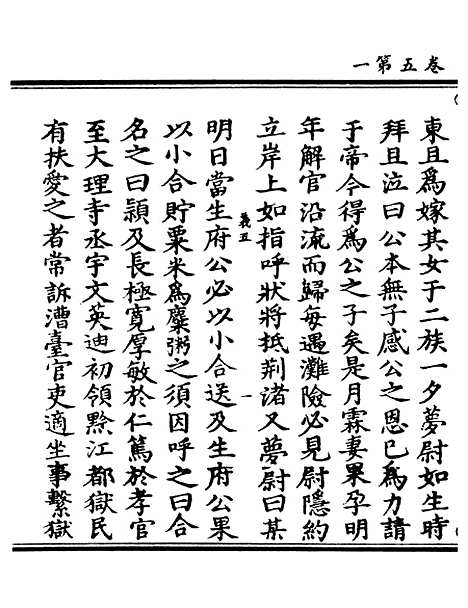 卷五第一
東且爲嫁其女于二族一夕夢尉如生時
拜且泣曰公本無子感公之恩已爲力請
于帝令得爲公之子矣是月霖妻果孕明
年解官沿流而歸每遇灘險必見尉隱約
立岸上如指呼狀將抵荆渚又夢尉曰某
義五 一
明日當生府公必以小合送及生府公果
以小合貯粟米爲麋粥之須因呼之曰合
名之曰頴及長極寛厚敏於仁篤於孝官
至大理寺丞字文英迪初領黥江都獄民
有扶愛之者常訴漕臺官吏適坐事繫獄